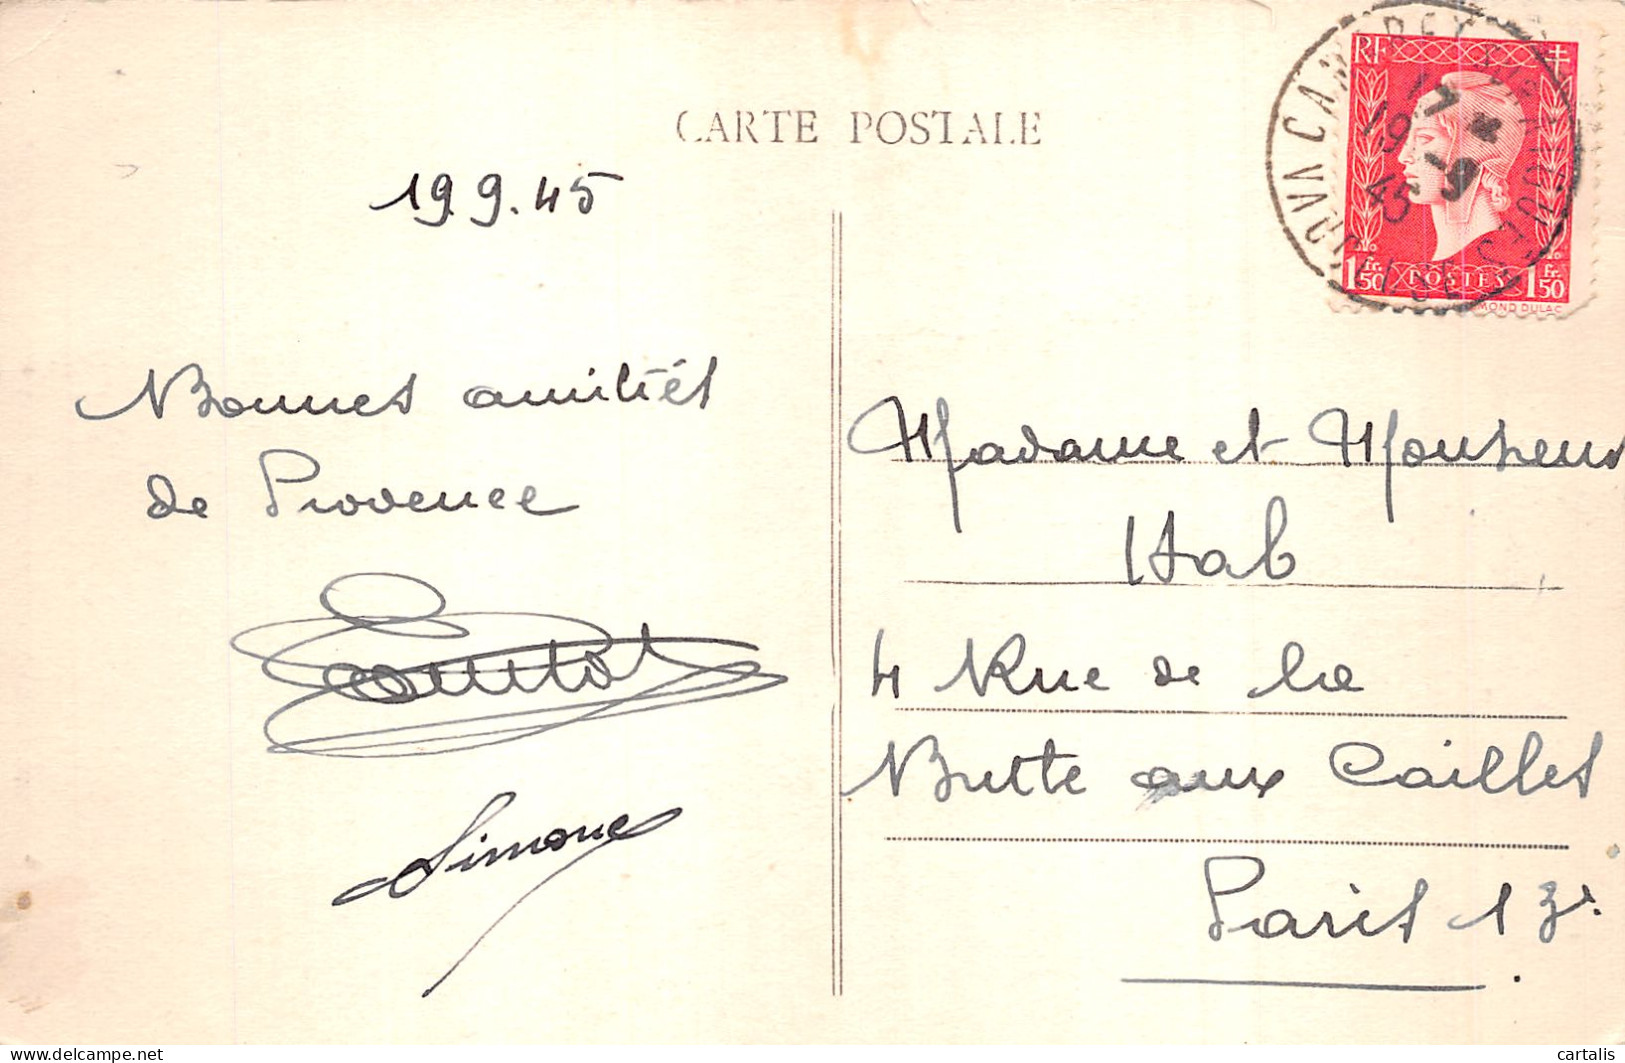 CARTE POSTALE
19.9.45
Bonnes amitiés
de Provence
Simone
RF
1 Fr. 50
POSTES
1 Fr. 50
EDMOND DULAC
VAUCLUSE
17 H
19 -9
45
Madame et Monsieur
4 Rue de la
Butte aux Cailles
Paris 13e.
delcampe.net
cartalis